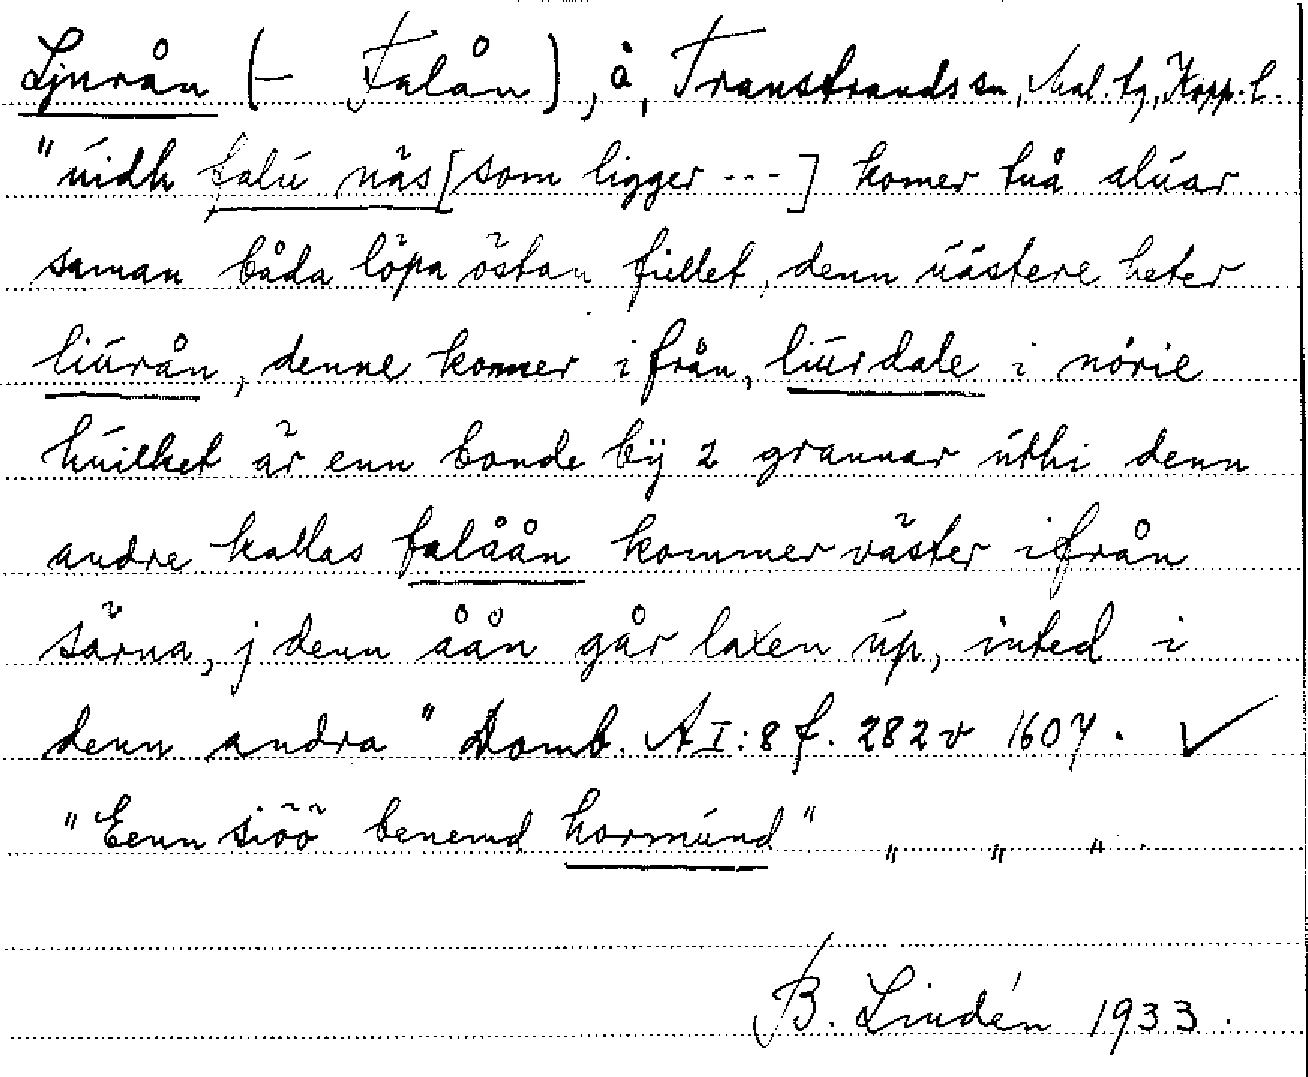 Ljurån (– Falån), å, Transtrands sn, Mal. tg, Kopp. l.
"úidh falú näs [som ligger ---] komer tuå alúar
saman båda löpa östan fiellet, denn úästere heter
liúrån, denne kommer i från, liúrdale i nórie
húilket är enn bonde bÿ 2 grannar úthi denn
andre kallas falåån kommer väster ifrån
särna, j denn åån går laxen úp, inted i
denn andra" Domb. A I:8 f. 282v 1607. ✓
"Eenn siöö benemd hormúnd" " " ".
B. Lindén 1933.